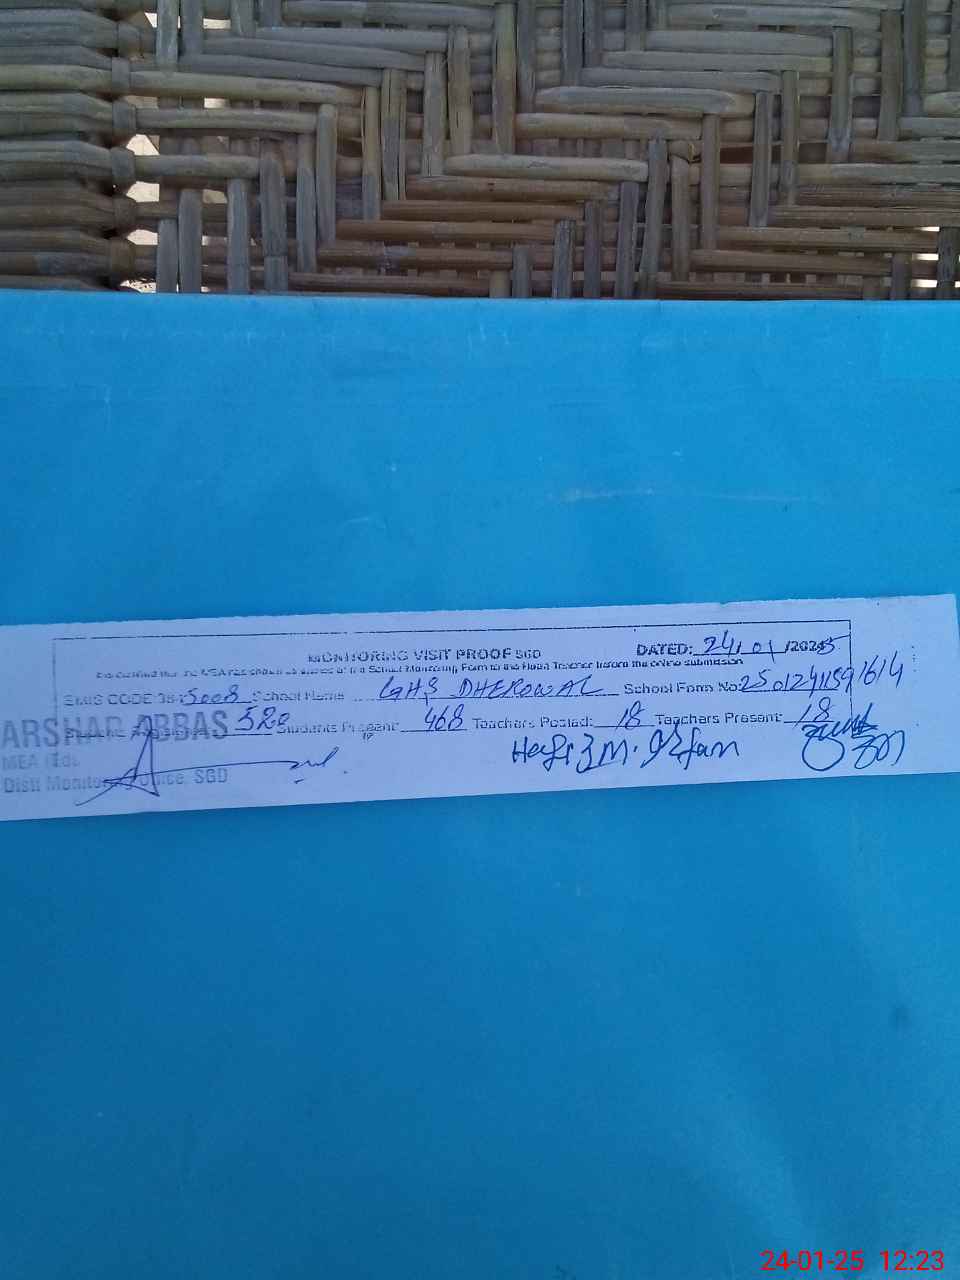 MONITORING VISIT PROOF SGD
DATED: 24/01/2025
It is certified that the MEA has shown all entries of the School Monitoring Form to the Head Teacher before the online submission
EMIS CODE 384 5008 School Name GHS DHEROWAL School Form No: 2501241159
ARSHAD ABBAS
520 Students Present: 468 Teachers Posted: 18 Teachers Present: 18
MEA
Distt Monitoring Office, SGD
M. Irfan
24-01-25 12:23